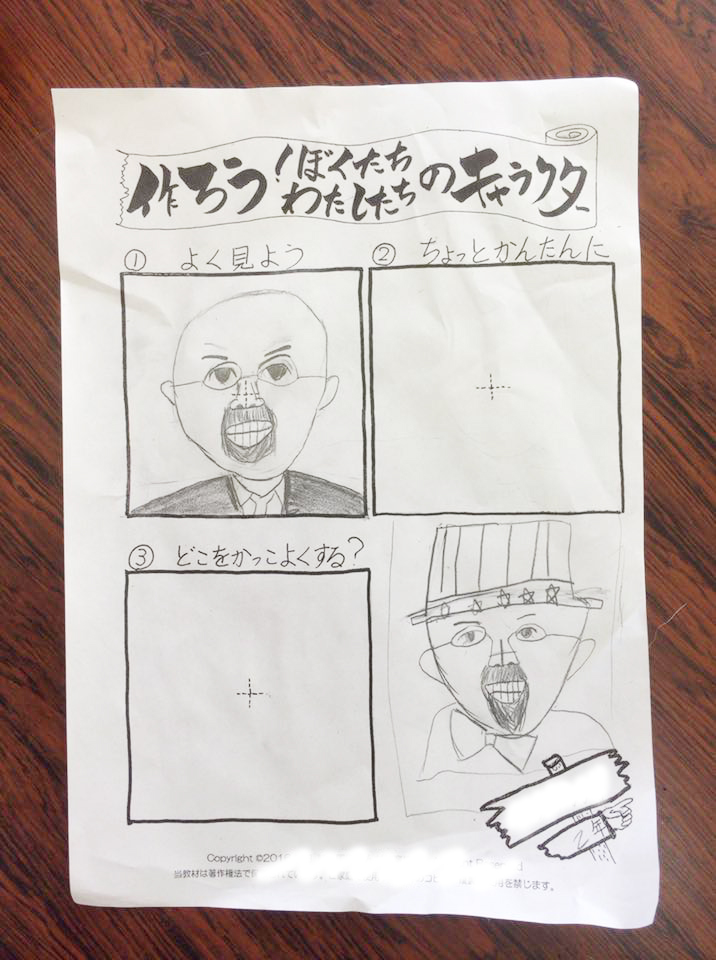 作ろう!ぼくたちわたしたちのキャラクター
① よく見よう
② ちょっとかんたんに
③ どこをかっこよくする?
2年
Copyright ©201
当教材は著作権法で
を禁じます。